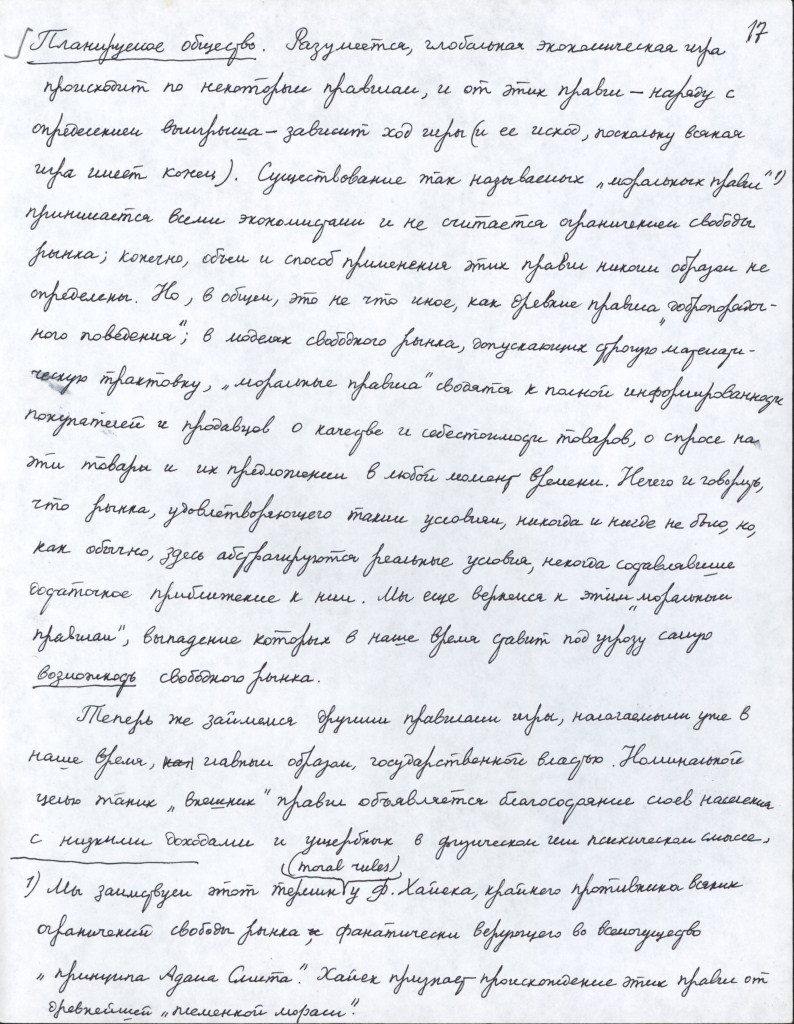 17
Планируемое общество. Разумеется, глобальная экономическая игра
происходит по некоторым правилам, и от этих правил — наряду с
определением выигрыша — зависит ход игры (и ее исход, поскольку всякая
игра имеет конец). Существование так называемых „моральных правил" 1)
принимается всеми экономистами и не считается ограничением свободы
рынка; конечно, объем и способ применения этих правил никоим образом не
определены. Но, в общем, это не что иное, как древние правила „добропорядоч-
ного поведения"; в моделях свободного рынка, допускающих строгую математи-
ческую трактовку, „моральные правила" сводятся к полной информированности
покупателей и продавцов о качестве и себестоимости товаров, о спросе на
эти товары и их предложении в любой момент времени. Нечего и говорить,
что рынка, удовлетворяющего таким условиям, никогда и нигде не было, но,
как обычно, здесь абстрагируются реальные условия, некогда составлявшие
достаточное приближение к ним. Мы еще вернемся к этим „моральным
правилам", выпадение которых в наше время ставит под угрозу самую
возможность свободного рынка.
Теперь же займемся другими правилами игры, налагаемыми уже в
наше время, главным образом, государственной властью. Номинальной
целью таких „внешних" правил объявляется благосостояние слоев населения
с низкими доходами и ущербных в физическом или психическом смысле,
(moral rules)
1) Мы заимствуем этот термин у Ф. Хайека, крайнего противника всяких
ограничений свободы рынка, фанатически верующего во всемогущество
„принципа Адама Смита". Хайек признает происхождение этих правил от
древнейшей „племенной морали".